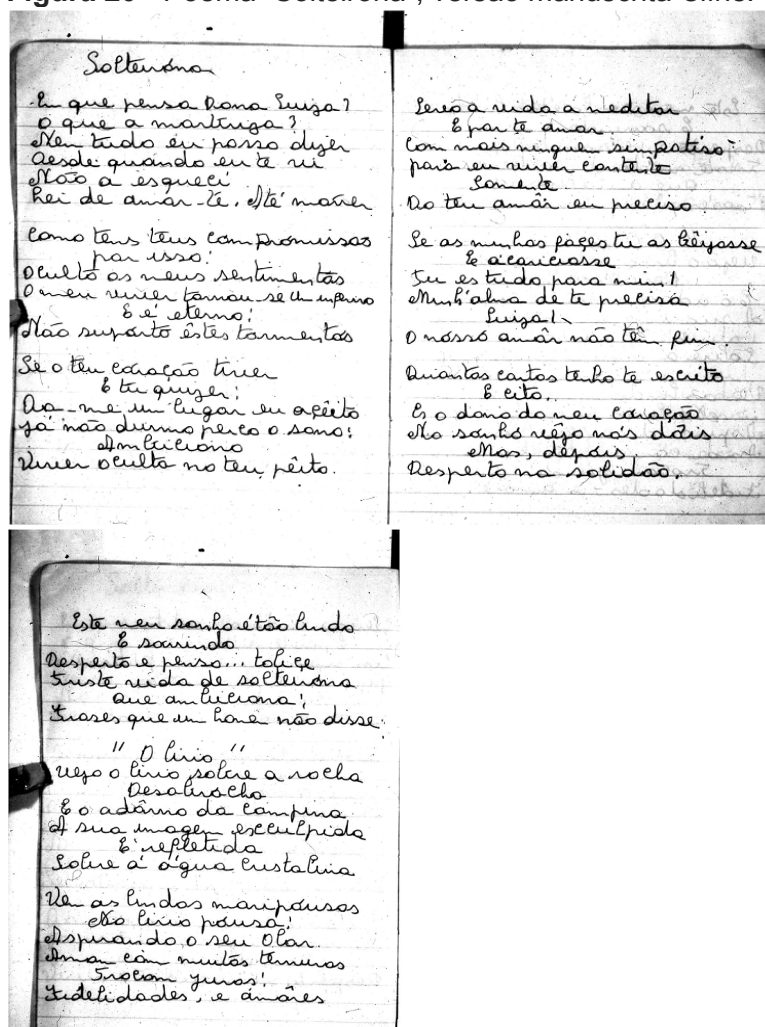 Figura Poema "Solteirona", versão manuscrita
Solteirona
Em que pensa Dona Luiza?
O que a martiriza?
Nem tudo eu posso dizer
Desde quando eu te vi
Não a esqueci
Hei de amar-te. Até morrer
Como tens teus compromissos
por isso!
Oculto os meus sentimentos
O meu viver tornou-se um inferno
E é eterno!
Não suporto êstes tormentos
Se o teu coração tiver
E tu quizer!
Da-me um lugar eu açêito
já não durmo perco o sono!
Ambiciono
Viver oculto no teu pêito.
Levo a vida a meditar
E por te amar
Com mais ninguem simpatiso
para eu viver contente
Somente
Do teu amôr eu preciso
Se as minhas façes tu as bêijasse
E acariciasse
Tu es tudo para mim!
Minh'alma de te precisa
Luiza!
O nósso amôr não têm fim.
Quantas cartas tenho te escrito
E cito.
És o dono do meu coração
No sonhó vêjo nós dôis
Mas, depois,
Desperto na solidão.
Este meu sonho é tão lindo
E sorrindo
Desperto e penso... toliçe
Triste vida de solteirona
Que ambiciona!
Frases que um home não disse.
" O lirio "
Vejo o lirio sobre a rocha
Desabrocha
E o adôrno da campina
A sua imagem esculpida
E' refletida
Sobre a água cristalina
Vem as lindas maripousas
No lirio pousa!
Aspirando o seu olôr.
Amam com muitas ternuras
Trocam juras!
Fidelidades, e amôres